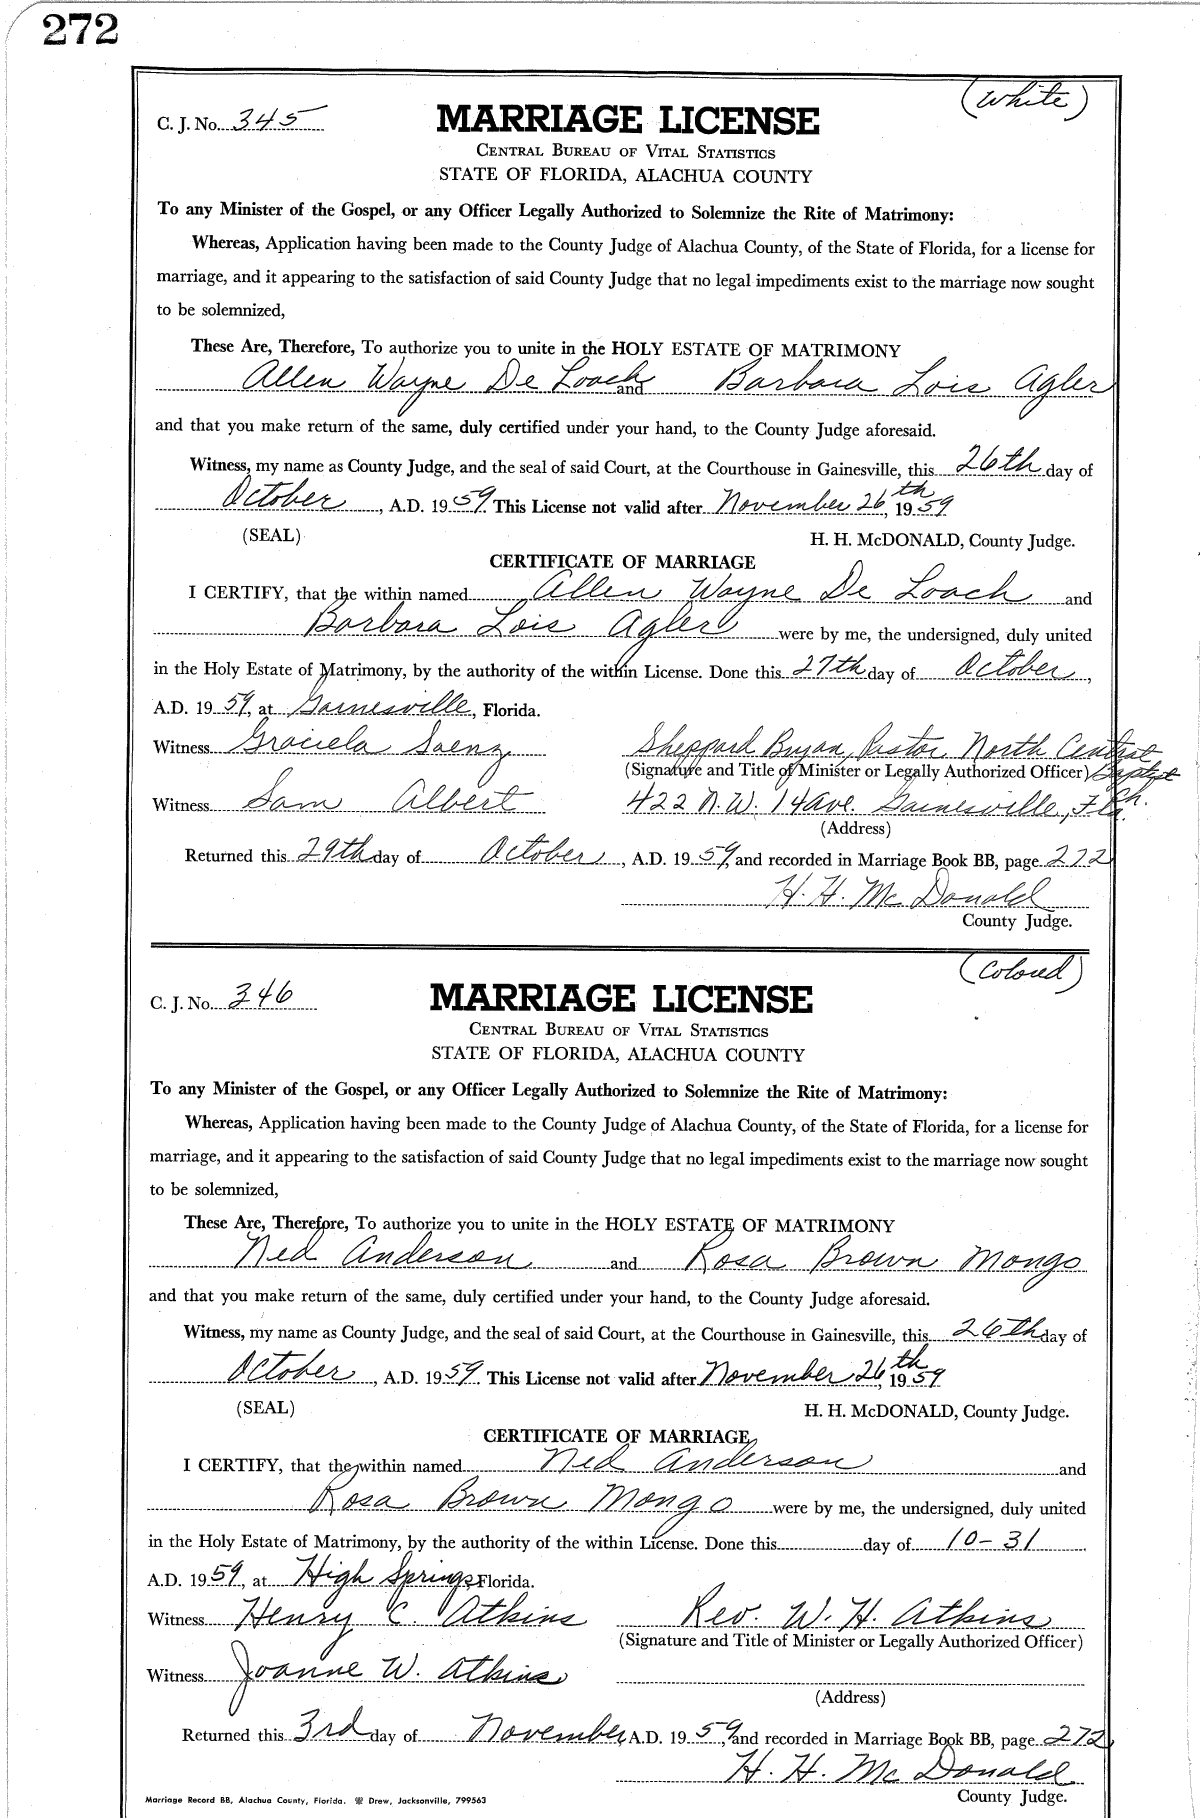 272
(White)
C. J. No. 345
MARRIAGE LICENSE
CENTRAL BUREAU OF VITAL STATISTICS
STATE OF FLORIDA, ALACHUA COUNTY
To any Minister of the Gospel, or any Officer Legally Authorized to Solemnize the Rite of Matrimony:
Whereas, Application having been made to the County Judge of Alachua County, of the State of Florida, for a license for
marriage, and it appearing to the satisfaction of said County Judge that no legal impediments exist to the marriage now sought
to be solemnized,
These Are, Therefore, To authorize you to unite in the HOLY ESTATE OF MATRIMONY
Allen Wayne De Loach and Barbara Lois Agler
and that you make return of the same, duly certified under your hand, to the County Judge aforesaid.
Witness, my name as County Judge, and the seal of said Court, at the Courthouse in Gainesville, this 26th day of
October, A.D. 1959. This License not valid after November 26th, 1959
(SEAL) H. H. McDONALD, County Judge.
CERTIFICATE OF MARRIAGE
I CERTIFY, that the within named Allen Wayne De Loach and
Barbara Lois Agler were by me, the undersigned, duly united
in the Holy Estate of Matrimony, by the authority of the within License. Done this 27th day of October,
A.D. 1959, at Gainesville, Florida.
Witness Graciela Saenz Sheppard Bryan, Pastor North Central
(Signature and Title of Minister or Legally Authorized Officer) Baptist Ch.
Witness Sam Albert 422 N.W. 14 Ave. Gainesville, Fla.
(Address)
Returned this 29th day of October, A.D. 1959, and recorded in Marriage Book BB, page 272
H. H. Mc Donald
County Judge.
(Colored)
C. J. No. 346
MARRIAGE LICENSE
CENTRAL BUREAU OF VITAL STATISTICS
STATE OF FLORIDA, ALACHUA COUNTY
To any Minister of the Gospel, or any Officer Legally Authorized to Solemnize the Rite of Matrimony:
Whereas, Application having been made to the County Judge of Alachua County, of the State of Florida, for a license for
marriage, and it appearing to the satisfaction of said County Judge that no legal impediments exist to the marriage now sought
to be solemnized,
These Are, Therefore, To authorize you to unite in the HOLY ESTATE OF MATRIMONY
Ned Anderson and Rosa Brown Mongo
and that you make return of the same, duly certified under your hand, to the County Judge aforesaid.
Witness, my name as County Judge, and the seal of said Court, at the Courthouse in Gainesville, this 26th day of
October, A.D. 1959. This License not valid after November 26th, 1959
(SEAL) H. H. McDONALD, County Judge.
CERTIFICATE OF MARRIAGE
I CERTIFY, that the within named Ned Anderson and
Rosa Brown Mongo were by me, the undersigned, duly united
in the Holy Estate of Matrimony, by the authority of the within License. Done this day of 10-31
A.D. 1959, at High Springs, Florida.
Witness Henry C. Atkins Rev. W. H. Atkins
(Signature and Title of Minister or Legally Authorized Officer)
Witness Joanne W. Atkins
(Address)
Returned this 3rd day of November, A.D. 1959, and recorded in Marriage Book BB, page 272
H. H. Mc Donald
County Judge.
Marriage Record BB, Alachua County, Florida. Drew, Jacksonville, 799563